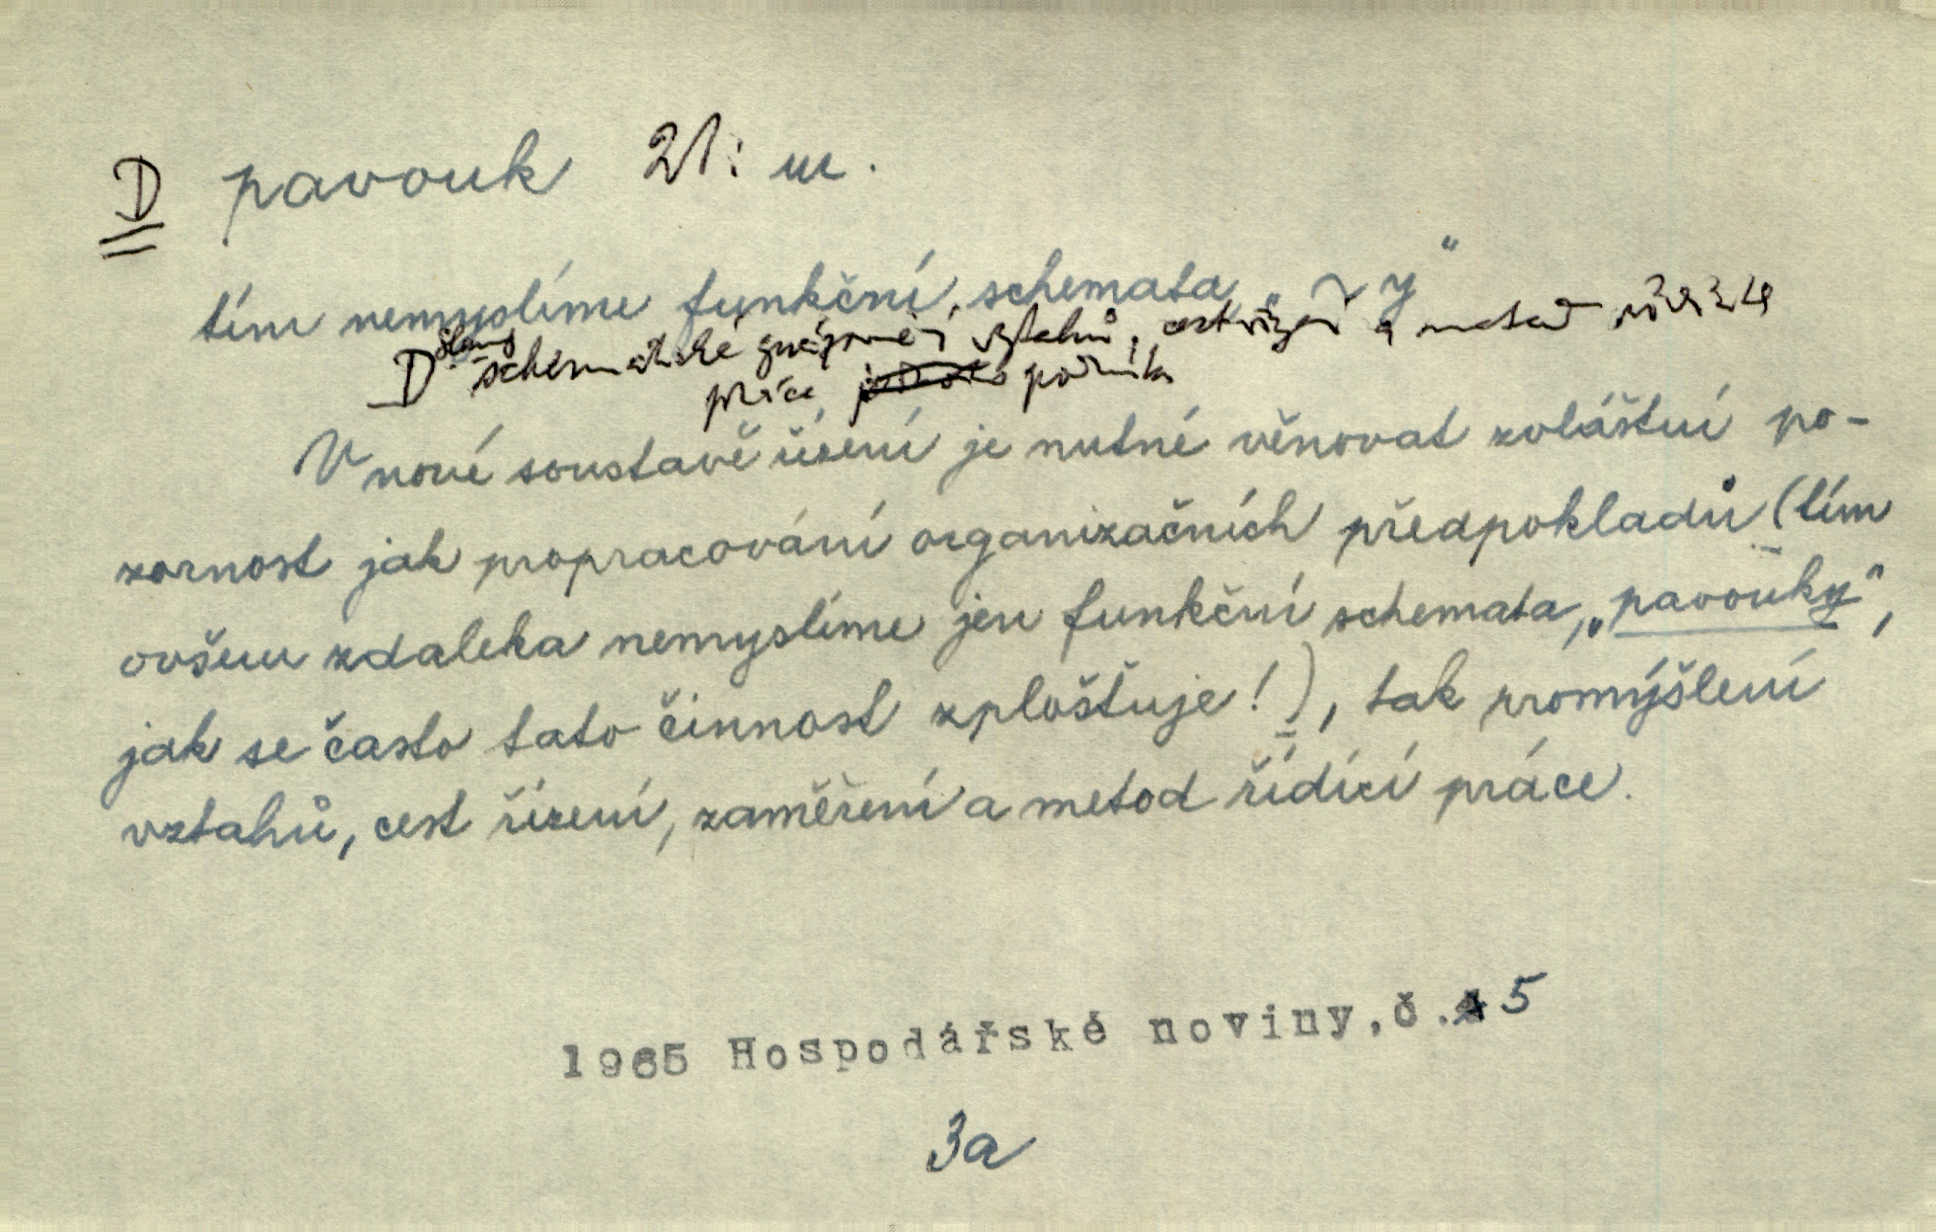 D pavouk 21. m.
tím nemyslíme funkční schemata „~y“
D slang. schematické znázornění vztahů, cest řízení a metod řídící
práce podniku
V nové soustavě řízení je nutné věnovat zvláštní po-
zornost jak propracování organizačních předpokladů (tím
ovšem zdaleka nemyslíme jen funkční schemata, „pavouky“,
jak se často tato činnost zplošťuje!), tak promýšlení
vztahů, cest řízení, zaměření a metod řídící práce.
1965 Hospodářské noviny,č. 5
3a